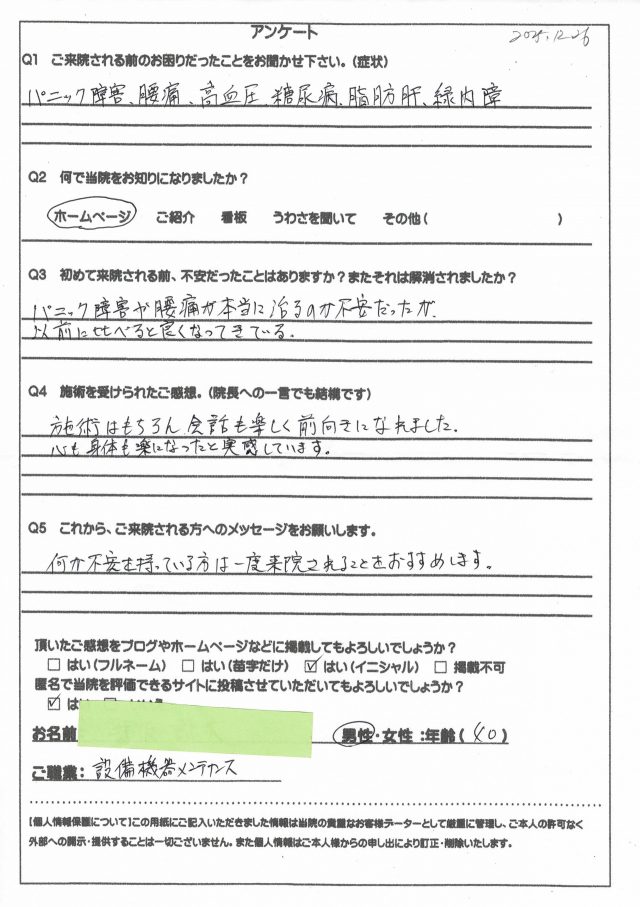 アンケート
2025.12.26
Q1 ご来院される前のお困りだったことをお聞かせ下さい。(症状)
パニック障害、腰痛、高血圧、糖尿病、脂肪肝、緑内障
Q2 何で当院をお知りになりましたか?
ホームページ ご紹介 看板 うわさを聞いて その他( )
Q3 初めて来院される前、不安だったことはありますか?またそれは解消されましたか?
パニック障害や腰痛が本当に治るのか不安だったが、
以前に比べると良くなってきている。
Q4 施術を受けられたご感想。(院長への一言でも結構です)
施術はもちろん会話も楽しく前向きになれました。
心も身体も楽になったと実感しています。
Q5 これから、ご来院される方へのメッセージをお願いします。
何か不安を持っている方は一度来院されることをおすすめします。
頂いたご感想をブログやホームページなどに掲載してもよろしいでしょうか?
□ はい(フルネーム) □ はい(苗字だけ) ☑ はい(イニシャル) □ 掲載不可
匿名で当院を評価できるサイトに投稿させていただいてもよろしいでしょうか?
☑ はい
お名前 男性・女性:年齢(40)
ご職業: 設備機器メンテナンス
【個人情報保護について】この用紙にご記入いただきました情報は当院の貴重なお客様データーとして厳重に管理し、ご本人の許可なく
外部への開示・提供することは一切ございません。また個人情報はご本人様からの申し出により訂正・削除いたします。